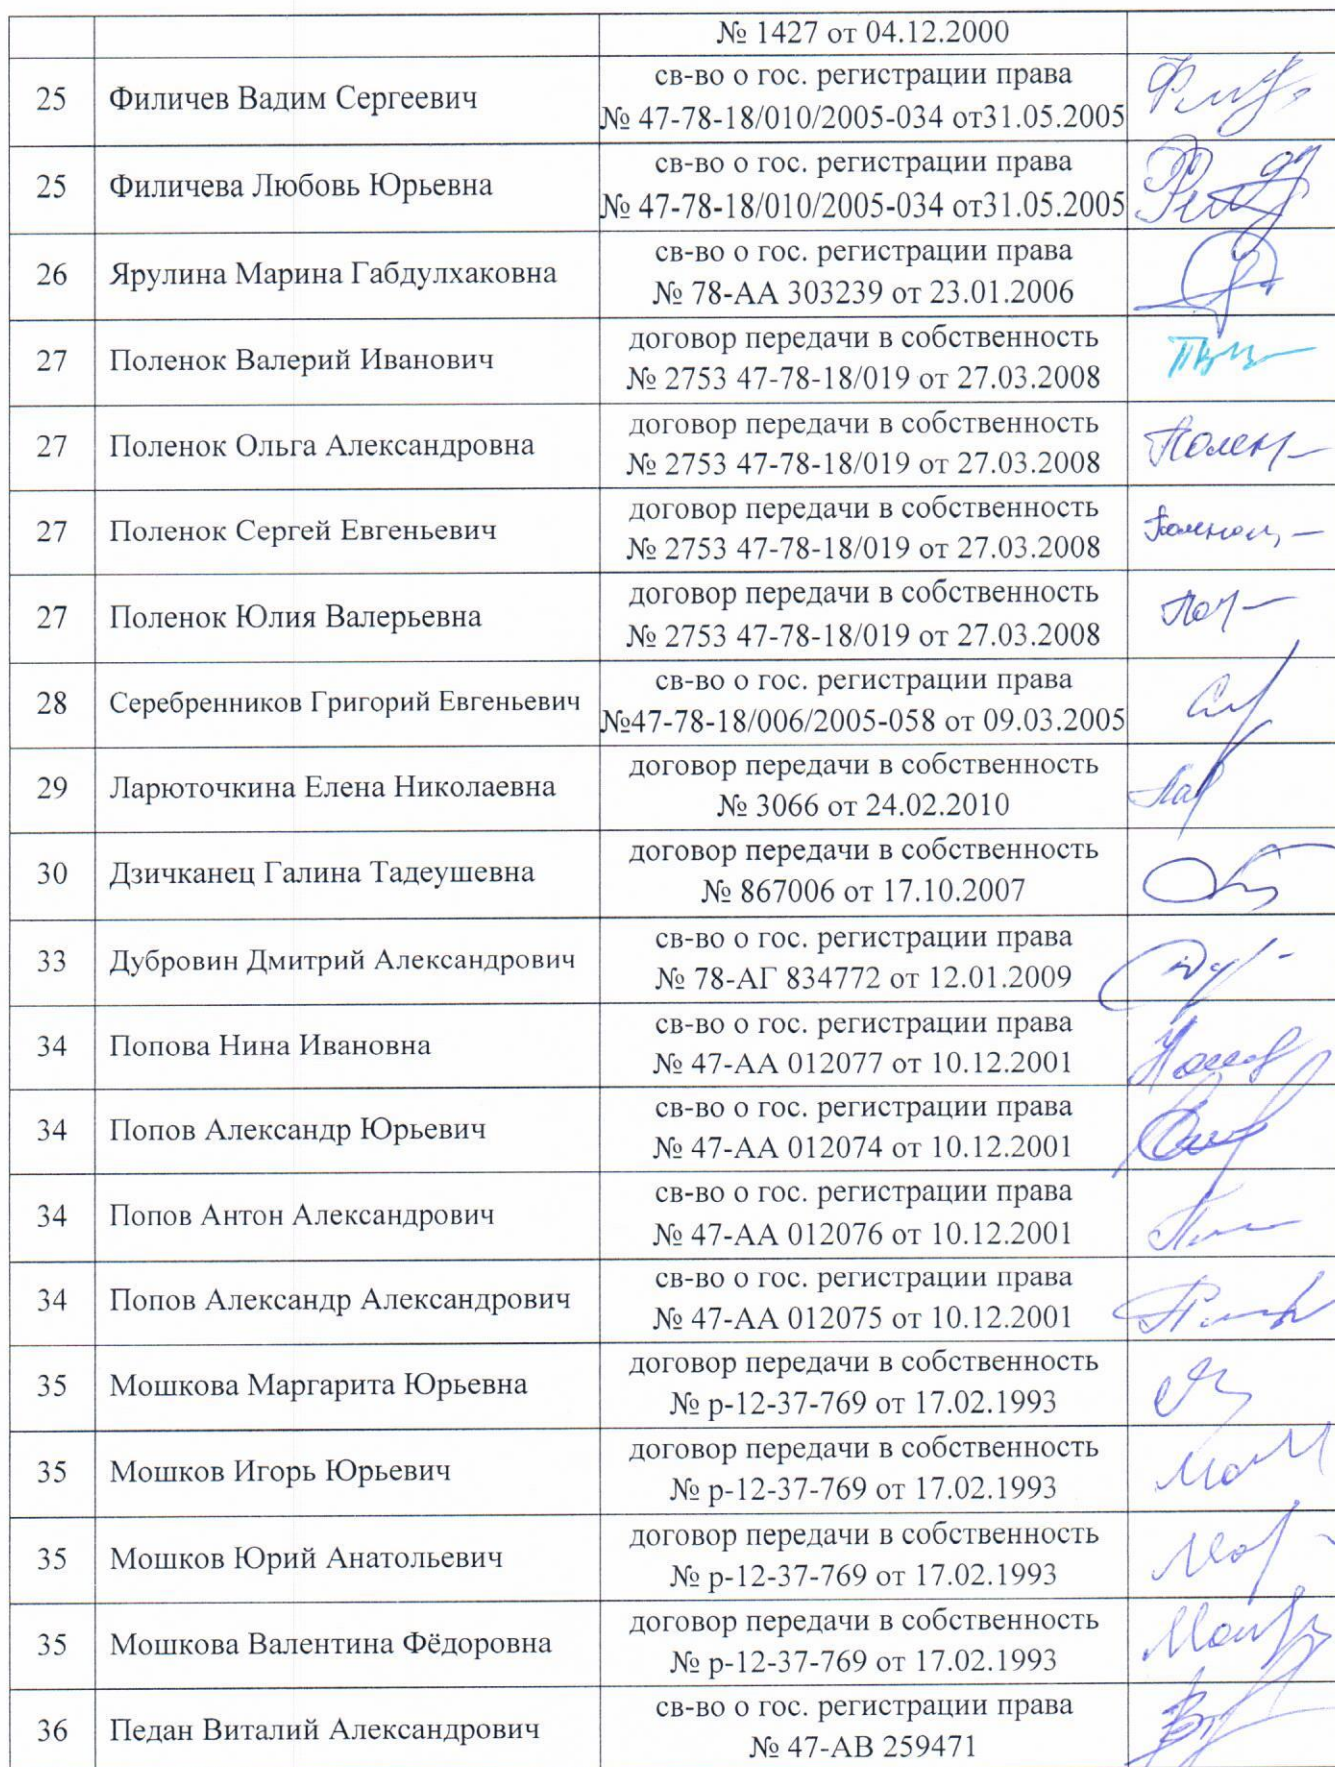 № 1427 от 04.12.2000
25 Филичев Вадим Сергеевич св-во о гос. регистрации права
№ 47-78-18/010/2005-034 от31.05.2005
25 Филичева Любовь Юрьевна св-во о гос. регистрации права
№ 47-78-18/010/2005-034 от31.05.2005
26 Ярулина Марина Габдулхаковна св-во о гос. регистрации права
№ 78-АА 303239 от 23.01.2006
27 Поленок Валерий Иванович договор передачи в собственность
№ 2753 47-78-18/019 от 27.03.2008
27 Поленок Ольга Александровна договор передачи в собственность
№ 2753 47-78-18/019 от 27.03.2008
27 Поленок Сергей Евгеньевич договор передачи в собственность
№ 2753 47-78-18/019 от 27.03.2008
27 Поленок Юлия Валерьевна договор передачи в собственность
№ 2753 47-78-18/019 от 27.03.2008
28 Серебренников Григорий Евгеньевич св-во о гос. регистрации права
№47-78-18/006/2005-058 от 09.03.2005
29 Ларюточкина Елена Николаевна договор передачи в собственность
№ 3066 от 24.02.2010
30 Дзичканец Галина Тадеушевна договор передачи в собственность
№ 867006 от 17.10.2007
33 Дубровин Дмитрий Александрович св-во о гос. регистрации права
№ 78-АГ 834772 от 12.01.2009
34 Попова Нина Ивановна св-во о гос. регистрации права
№ 47-АА 012077 от 10.12.2001
34 Попов Александр Юрьевич св-во о гос. регистрации права
№ 47-АА 012074 от 10.12.2001
34 Попов Антон Александрович св-во о гос. регистрации права
№ 47-АА 012076 от 10.12.2001
34 Попов Александр Александрович св-во о гос. регистрации права
№ 47-АА 012075 от 10.12.2001
35 Мошкова Маргарита Юрьевна договор передачи в собственность
№ р-12-37-769 от 17.02.1993
35 Мошков Игорь Юрьевич договор передачи в собственность
№ р-12-37-769 от 17.02.1993
35 Мошков Юрий Анатольевич договор передачи в собственность
№ р-12-37-769 от 17.02.1993
35 Мошкова Валентина Фёдоровна договор передачи в собственность
№ р-12-37-769 от 17.02.1993
36 Педан Виталий Александрович св-во о гос. регистрации права
№ 47-АВ 259471